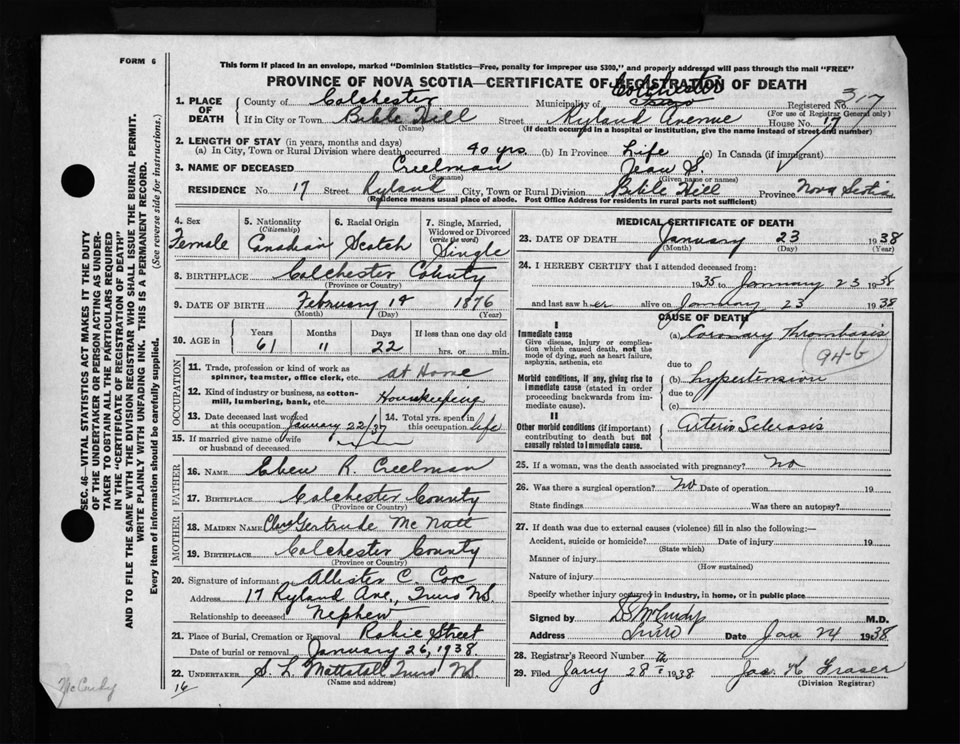 FORM 6
This form if placed in an envelope, marked "Dominion Statistics—Free, penalty for improper use $300," and properly addressed will pass through the mail "FREE"
PROVINCE OF NOVA SCOTIA—CERTIFICATE OF REGISTRATION OF DEATH
1. PLACE OF DEATH County of Colchester Municipality of Colchester Truro Registered No. 317
(For use of Registrar General only)
If in City or Town Bible Hill Street Ryland Avenue House No. 17
(Name) (If death occurred in a hospital or institution, give the name instead of street and number)
2. LENGTH OF STAY (in years, months and days)
(a) In City, Town or Rural Division where death occurred 40 yrs. (b) In Province Life (c) In Canada (if immigrant)
3. NAME OF DECEASED Creelman Jean S.
(Surname) (Given name or names)
RESIDENCE No. 17 Street Ryland City, Town or Rural Division Bible Hill Province Nova Scotia
(Residence means usual place of abode. Post Office Address for residents in rural parts not sufficient)
4. Sex Female
5. Nationality (Citizenship) Canadian
6. Racial Origin Scotch
7. Single, Married, Widowed or Divorced (write the word) Single
8. BIRTHPLACE Colchester County
(Province or County)
9. DATE OF BIRTH February 14 1876
(Month) (Day) (Year)
10. AGE in Years 61 Months 11 Days 22 If less than one day old hrs. or min.
OCCUPATION
11. Trade, profession or kind of work as spinner, teamster, office clerk, etc. at Home
12. Kind of industry or business, as cotton-mill, lumbering, bank, etc. Housekeeping
13. Date deceased last worked at this occupation January 22/37
14. Total yrs. spent in this occupation life
15. If married give name of wife or husband of deceased
FATHER
16. NAME Eben R. Creelman
17. BIRTHPLACE Colchester County
(Province or County)
MOTHER
18. MAIDEN NAME Gertrude McNutt
19. BIRTHPLACE Colchester County
(Province or County)
20. Signature of informant Allister C. Cox
Address 17 Ryland Ave., Truro N.S.
Relationship to deceased Nephew
21. Place of Burial, Cremation or Removal Robie Street
Date of burial or removal January 26, 1938.
22. UNDERTAKER S. L. Mattatall Truro N.S.
(Name and address)
MEDICAL CERTIFICATE OF DEATH
23. DATE OF DEATH January 23 1938
(Month) (Day) (Year)
24. I HEREBY CERTIFY that I attended deceased from:
1935 to January 23 1938
and last saw her alive on January 23 1938
CAUSE OF DEATH
I
Immediate cause (a) Coronary Thrombosis
Give disease, injury or complication which caused death, not the mode of dying, such as heart failure, asphyxia, asthenia, etc
94-b
due to
Morbid conditions, if any, giving rise to immediate cause (stated in order proceeding backwards from immediate cause). (b) hypertension
due to
(c)
II
Other morbid conditions (if important) contributing to death but not causally related to immediate cause. Arterio Sclerosis
25. If a woman, was the death associated with pregnancy? No
26. Was there a surgical operation? No Date of operation 19
State findings Was there an autopsy?
27. If death was due to external causes (violence) fill in also the following:—
Accident, suicide or homicide? Date of injury 19
(State which)
Manner of injury
(How sustained)
Nature of injury
Specify whether injury occurred in industry, in home, or in public place
Signed by McCurdy M.D.
Address Truro Date Jan 24 1938
28. Registrar's Record Number
29. Filed Jany 28th 1938 Jas. Fraser
(Division Registrar)
SEC. 46—VITAL STATISTICS ACT MAKES IT THE DUTY
OF THE UNDERTAKER OR PERSON ACTING AS UNDER-
TAKER TO OBTAIN ALL THE PARTICULARS REQUIRED
IN THE "CERTIFICATE OF REGISTRATION OF DEATH"
AND TO FILE THE SAME WITH THE DIVISION REGISTRAR WHO SHALL ISSUE THE BURIAL PERMIT.
WRITE PLAINLY WITH UNFADING INK. THIS IS A PERMANENT RECORD.
Every item of information should be carefully supplied. (See reverse side for instructions.)
McCurdy
16